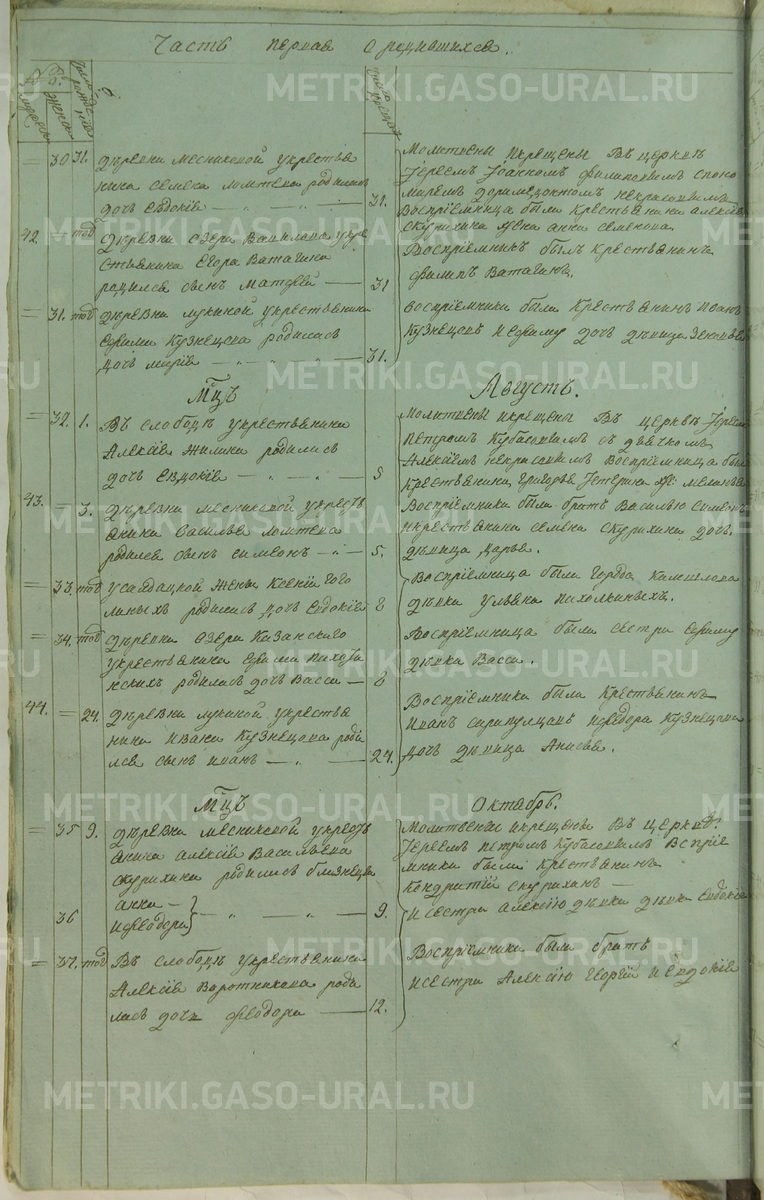 Часть первая о родившихся.
30 31. Деревни Месниковой у крестья
нина Семена Ломтева родилась
дочь Евдокия 31.
Молитвены и крещены въ церквѣ
Іереемъ Іоанномъ Филиповымъ с поно
маремъ Некрасовымъ
Восприемница была крестьянина Алексѣя
Скурихина жена Анна Семенова
42. той деревни Озера Вавилова у кре
стьянина Егора Ватагина
родился сынъ Матѳей 31
Восприемникъ былъ крестьянинъ
Филипъ Ватагинъ.
31. той деревни Лукиной у крестьянина
Ефима Кузнецова родилась
дочь Марія 31.
Восприемники были крестьянинъ Иванъ
Кузнецовъ и Ефиму дочь дѣвица
Мцъ Августъ.
32. 1. Въ слободѣ у крестьянина
Алексѣя Жилина родилась
дочь Евдокия 5
Молитвены и крещены въ церквѣ Іереемъ
Петромъ Кубасовымъ съ дьячкомъ
Алексѣемъ Некрасовымъ Восприемница была
крестьянина Григорья
43. 3. Деревни Месниковой у кресть
янина Василья Ломтева
родился сынъ Симеонъ 5.
Восприемники были братъ Василью Симеонъ
и крестьянина Семена Скурихина дочь
дѣвица Дарья.
33. той У салдацкой жены Ксеніи Гого
линыхъ родилась дочь Евдокия 8
Восприемница была города Камышлова
дѣвка Ульяна Пахолкиныхъ.
34. той деревни Озера Казанского
у крестьянина Ефима
родилась дочь Васса 8
Восприемница была сестра Ефиму
дѣвка Васса.
44. 24. Деревни Лукиной у крестья
нина Ивана Кузнецова роди
лся сынъ Иванъ 24.
Восприемники были крестьянинъ
Иванъ Сарапулцовъ и Федора Кузнецова
дочь дѣвица Анисья.
Мцъ Октябрь.
35 9. Деревни Месниковой у кресть
янина Алексѣя Васильева
Скурихина родились близнецы
Анна
36 и Феодора 9.
Молитвены и крещены въ церквѣ
Іереемъ Петромъ Кубасовымъ Восприе
мники были крестьянинъ
Кондратій Скурихинъ
и сестра Алексѣю дѣвка Евдокия
37. той Въ слободѣ у крестьянина
Алексѣя Воротникова роди
лась дочь Феодора 12.
Восприемники были братъ
и сестра Алексѣю Георгій и Евдокия
METRIKI.GASO-URAL.RU